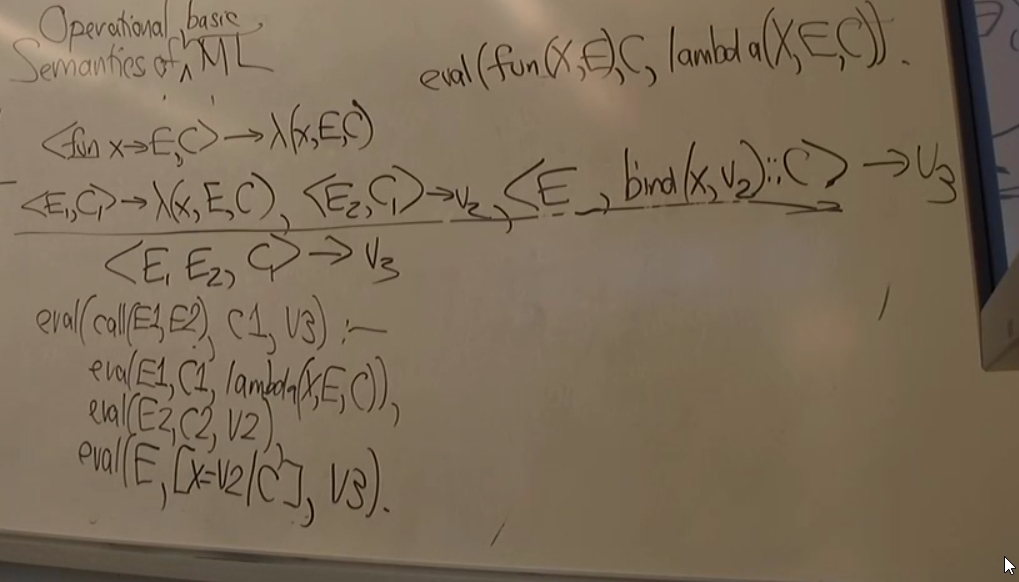 Operational basic
Semantics of ^ ML
eval(fun(X,E),C, lambda(X,E,C)).
<fun x→E,C> → λ(x,E,C)
<E₁,C₁> → λ(x,E,C), <E₂,C₁> → v₂, <E, bind(x,v₂)::C> → v₃
<E₁ E₂, C₁> → v₃
eval(call(E1,E2), C1, V3) :-
eval(E1,C1, lambda(X,E,C)),
eval(E2,C2,V2),
eval(E,[X=V2|C], V3).